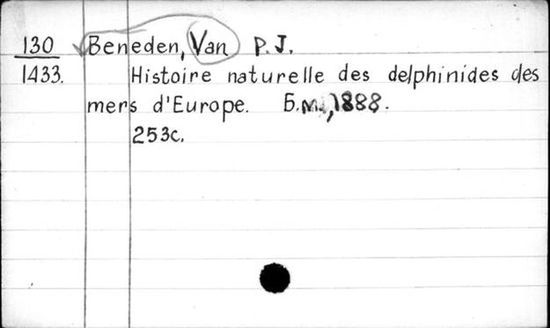 130 Beneden, Van P. J.
1433. Histoire naturelle des delphinides des
mers d'Europe. Б.м., 1888.
253с.